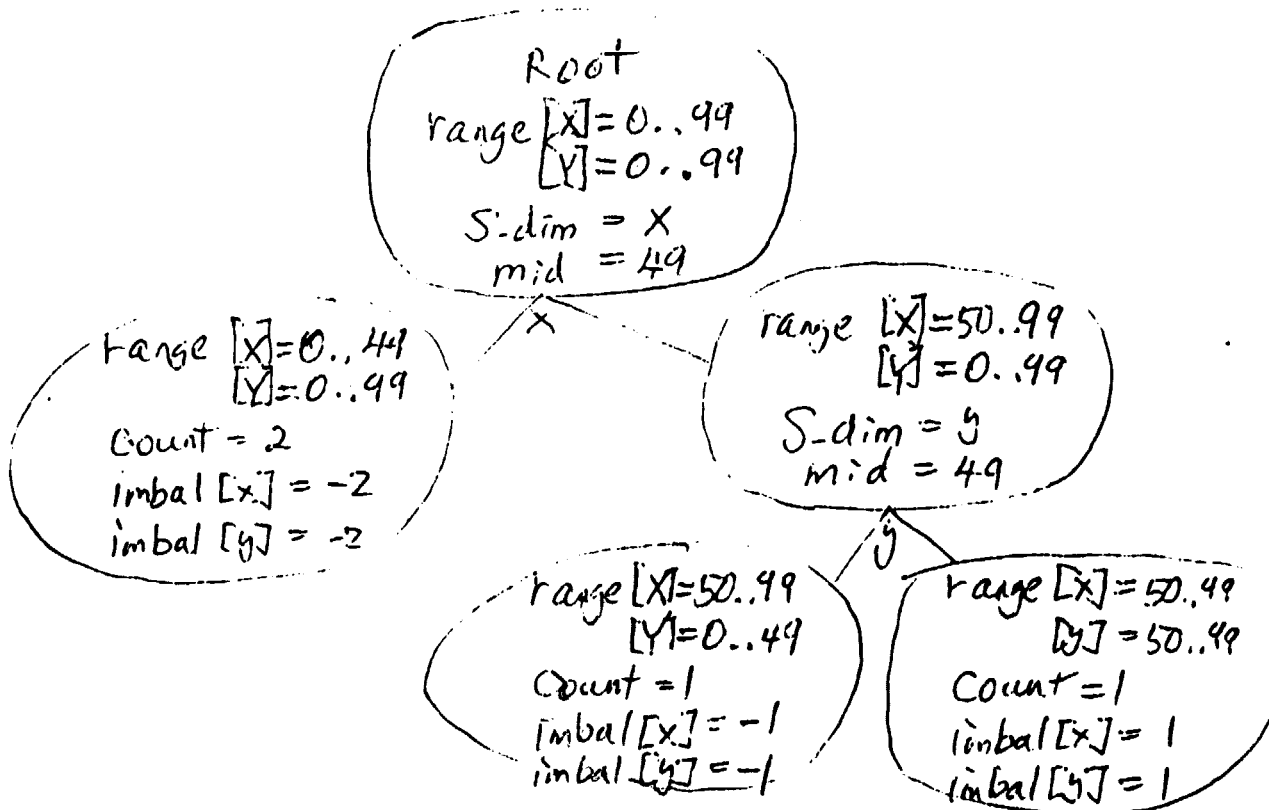 Root
range [X]=0..99
[Y]=0..99
S-dim = X
mid = 49
X
range [X]=0..49
[Y]=0..99
Count = 2
imbal [x] = -2
imbal [y] = -2
range [X]=50..99
[y]=0..99
S-dim = y
mid = 49
y
range [X]=50..99
[Y]=0..49
Count = 1
imbal [x] = -1
imbal [y] = -1
range [x] = 50..99
[y] = 50..99
Count = 1
imbal [x] = 1
imbal [y] = 1